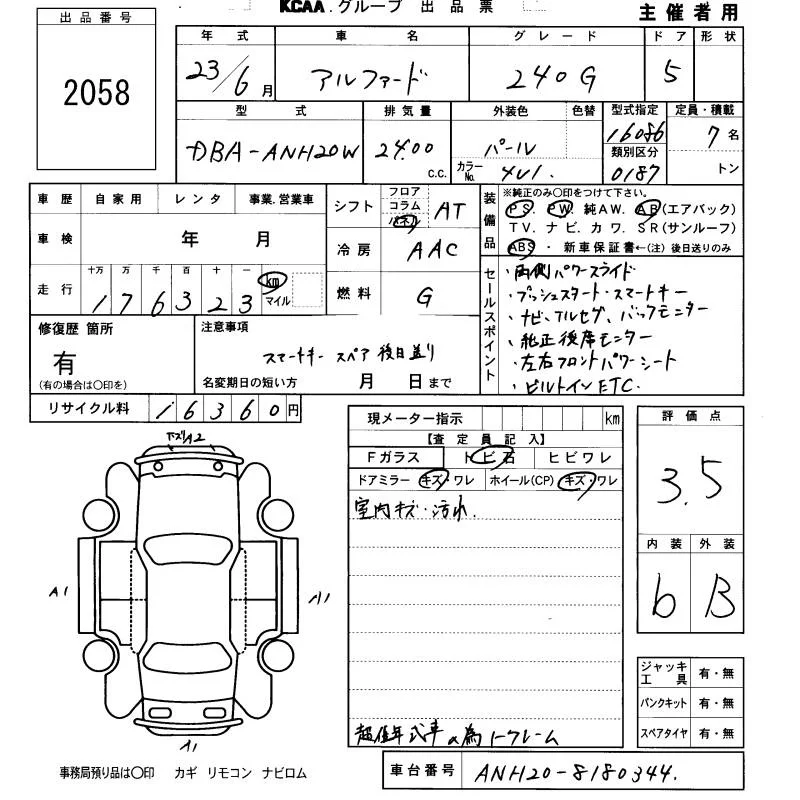 KCAA.グループ 出品票
主催者用
出品番号
2058
年式 車名 グレード ドア 形状
23/6月 アルファード 240G 5
型式 排気量 外装色 色替 型式指定 定員・積載
DBA-ANH20W 2400 c.c. パール カラーNo. 4U1. 16086 7名
類別区分
0187 トン
車歴 自家用 レンタ 事業.営業車
車検 年 月
走行 十万 万 千 百 十 一 km マイル
176323
シフト フロア コラム パネル AT
冷房 AAC
燃料 G
装備品
※純正のみ○印をつけて下さい。
PS. PW. 純AW. AB(エアバック)
TV. ナビ. カワ. SR(サンルーフ)
ABS ・ 新車保証書←(注) 後日送りのみ
セールスポイント
・両側パワースライド
・プッシュスタート・スマートキー
・ナビ、フルセグ、バックモニター
・純正後席モニター
・左右フロントパワーシート
・ビルトインETC.
修復歴 箇所
有
(有の場合は○印を)
注意事項
スマートキー スペア 後日送り
名変期日の短い方 月 日まで
リサイクル料 16360円
現メーター指示 km
【査定員記入】
Fガラス トビ石 ヒビワレ
ドアミラー キズ・ワレ ホイール(CP) キズ・ワレ
室内キズ・汚れ.
評価点
3.5
内装 外装
b B
下ズリA2
A1
A1
A1
ジャッキ 工具 有・無
パンクキット 有・無
スペアタイヤ 有・無
超低年式車の為ノークレーム
事務局預り品は○印 カギ リモコン ナビロム
車台番号 ANH20-8180344.